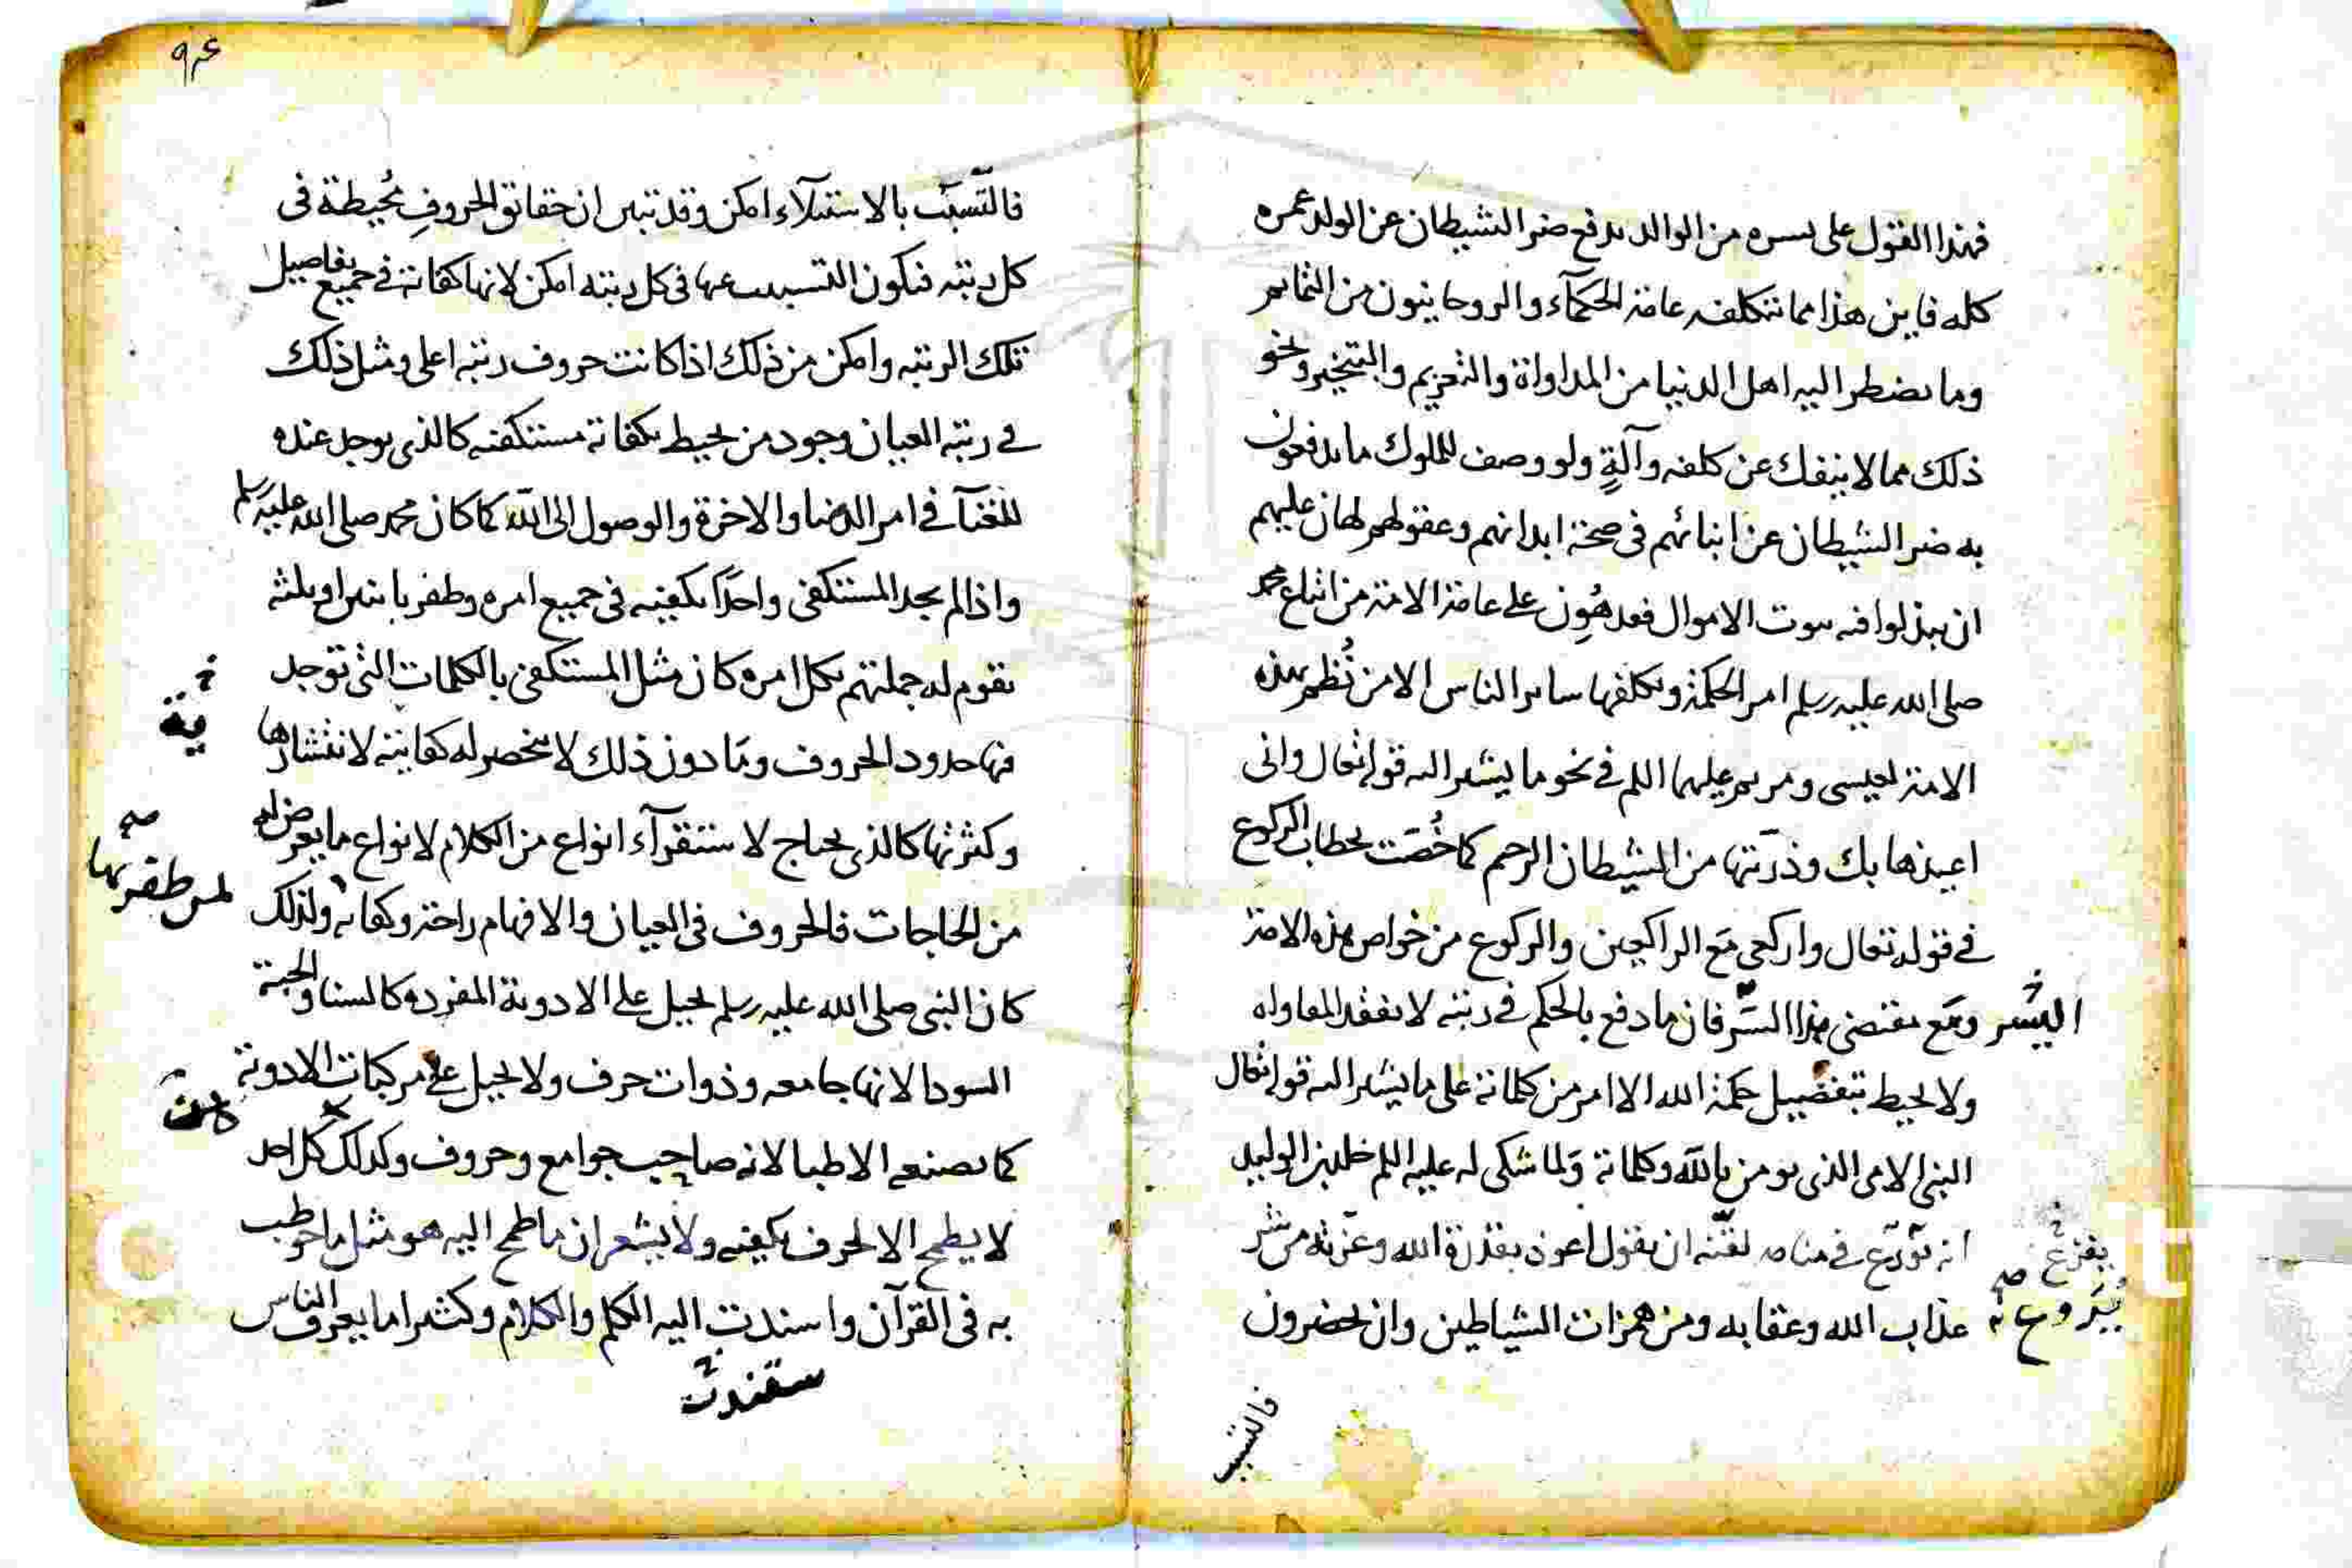 فهذا القول على يسره من الوالد يدفع ضر الشيطان عن الولد عمره
كله فاين هذا مما تتكلفه عامة الحكمآء والروحانيون من التمايم
وما يضطر اليه اهل الدنيا من المداواة والتعزيم والتبخير ونحو
ذلك مما لا ينفك عن كلفه وآلةٍ ولو وصف للملوك ما يدفعون
به ضر الشيطان عن ابنائهم في صحة ابدانهم وعقولهم لهان عليهم
ان يبذلوا فيه بيوت الاموال فقد هُوِن على عامة الامة من اتباع محمد
صلى الله عليه وسلم امر الحكمة وتكلفها ساير الناس الا من نُظم بهذه
الامة لعيسى ومريم عليهما اللم في نحو ما يشير اليه قوله تعالى واني
اعيذها بك وذريتها من الشيطان الرجيم كما خُصَت بخطاب الركوع
في قوله تعالى واركعي مَع الراكعين والركوع من خواص هذه الامة
اليُسْر ومَع مقتضى هذا السّر فان ما دفع بالحكم في رتبه لا يفقد المعاوله
ولا يحيط بتفضيل حكمة الله الا امر من كلماته على ما يشير اليه قوله تعالى
النبي الامي الذي يومن بالله وكلماته وَلما شكى له عليه اللم خلد بن الوليد
انه يُورَع في منامه لقّنه ان يقول اعوذ بقدرة الله وعزته من شر
يفزع
يُرَوع
عذاب الله وعقابه ومن همزات الشياطين وان يحضرون
فالتسبب
٩٤
فالتّسبّب بالاستيلآء امكن وقد تبين ان حقائق الحروفِ مُحيطة في
كل رتبه فيكون التسبب عنها في كل رتبه امكن لانها كفاية في جميع تفاصيل
تلك الرتبه وامكن من ذلك اذا كانت حروف رتبه اعلى ومثل ذلك
في رتبه العيان وجود من يحيط بكفاية مستكفيه كالذي يوجد عنده
للغنآ في امر الدنيا والاخرة والوصول الى الله كما كان محمد صلى الله عليه وسلم
واذا لم يجد المستكفي واحدًا يكفيه في جميع امره وظفر باثنين او بثلثه
يقوم له جملتهم بكل امره كان مثل المستكفي بالكلمات التي توجد
فيها حدود الحروف ومَا دون ذلك لا تنحصر له كفايته لانتشارها
ية
وكثرتها كالذي يحتاج لاستقرآء انواع من الكلام لانواع ما يعرض له
من الحاجات فالحروف في العيان والافهام راحة وكفاية ولذلك
لمن ظفر بها
كان النبي صلى الله عليه وسلم يحيل على الادوية المفرده كالسنا والحبة
السودا لانها جامعه وذوات حرف ولا يحيل على مركبات الادوية
كما يصنعه الاطبا لانه صاحب جوامع وحروف وكذلك كل احد
لا يطمح الا لحرف يكفيه ولا يشعر ان ما طمح اليه هو مثل ما خوطب
به في القرآن واسندت اليه الكلم والكلام وكثيرا ما يعرف الناس